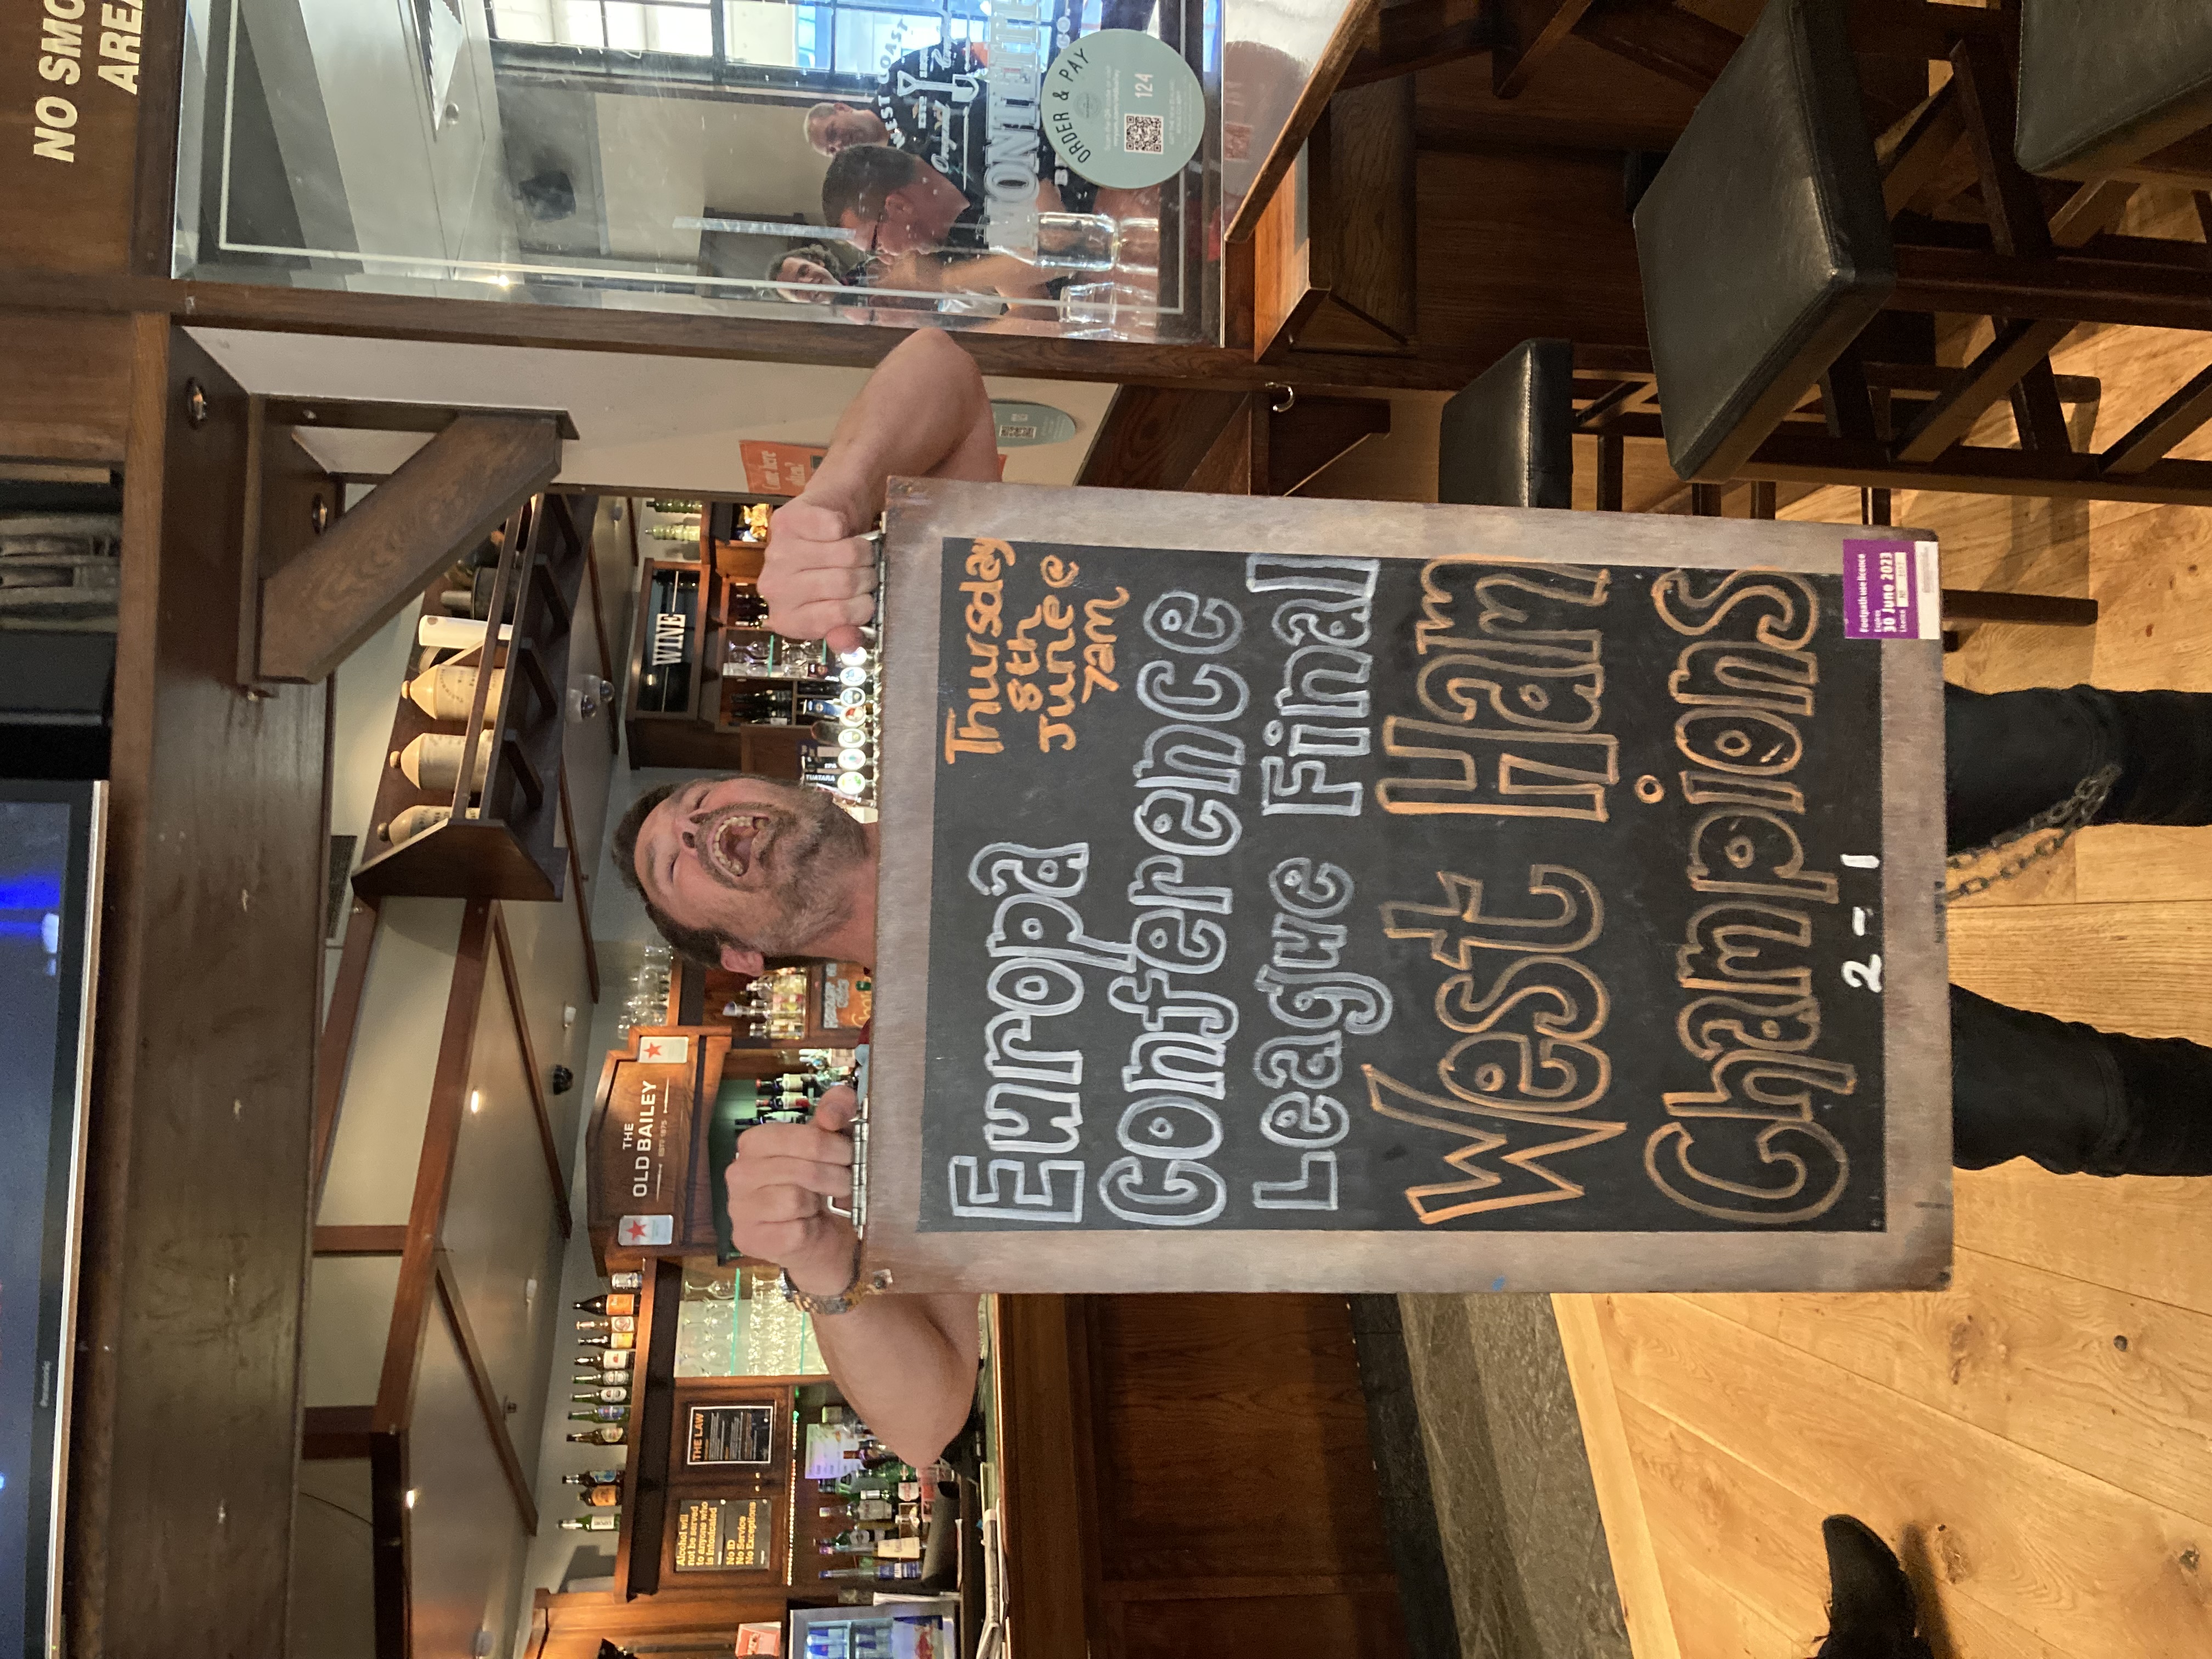 NO SMO
AREA
ORDER & PAY
124
WEST COAST
Original
MONTEITH
CO.
Come here
often?
WINE
TUATARA
IPA
THE
OLD BAILEY
ESTD 1875
THE LAW
Alcohol will
not be served
to anyone who
is intoxicated
No ID
No Service
No Exceptions
Panasonic
Thursday
8th
June @
7am
Europa
Conference
League Final
West Ham
Champions
2-1
Footpath use licence
Expires
30 June 2023
Licence